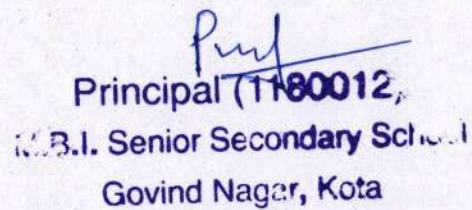 Principal (1180012,
M.B.I. Senior Secondary School
Govind Nagar, Kota